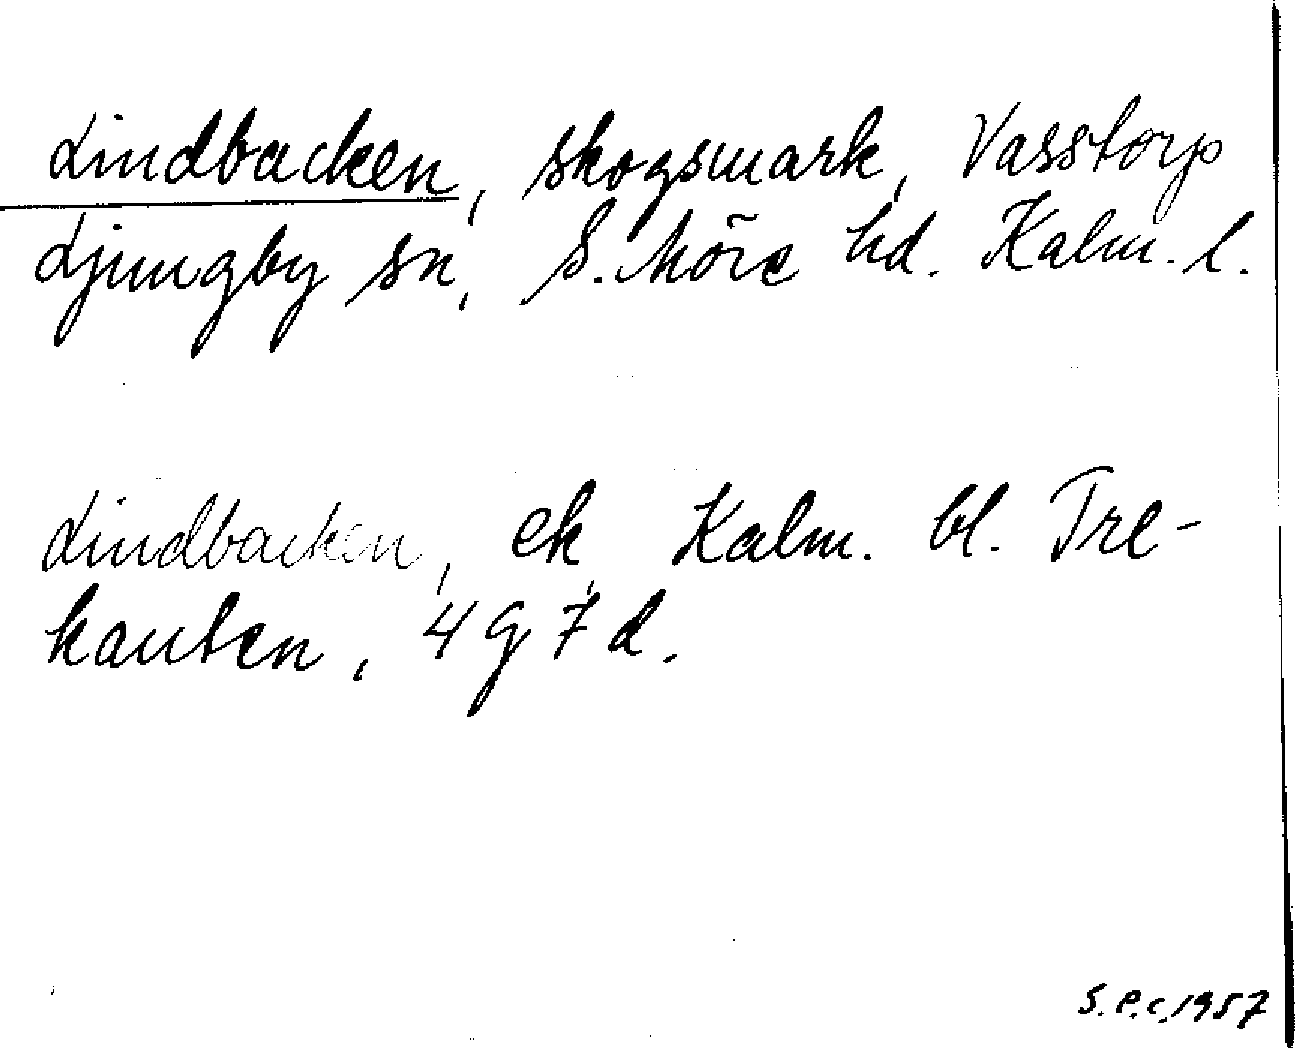 Lindbacken, skogsmark, Vasstorp
Ljungby sn, S. Möre hd. Kalm. l.
Lindbacken, ek, Kalm. bl. Tre-
kanten, 4 g 7 d.
S.P.C. 1957